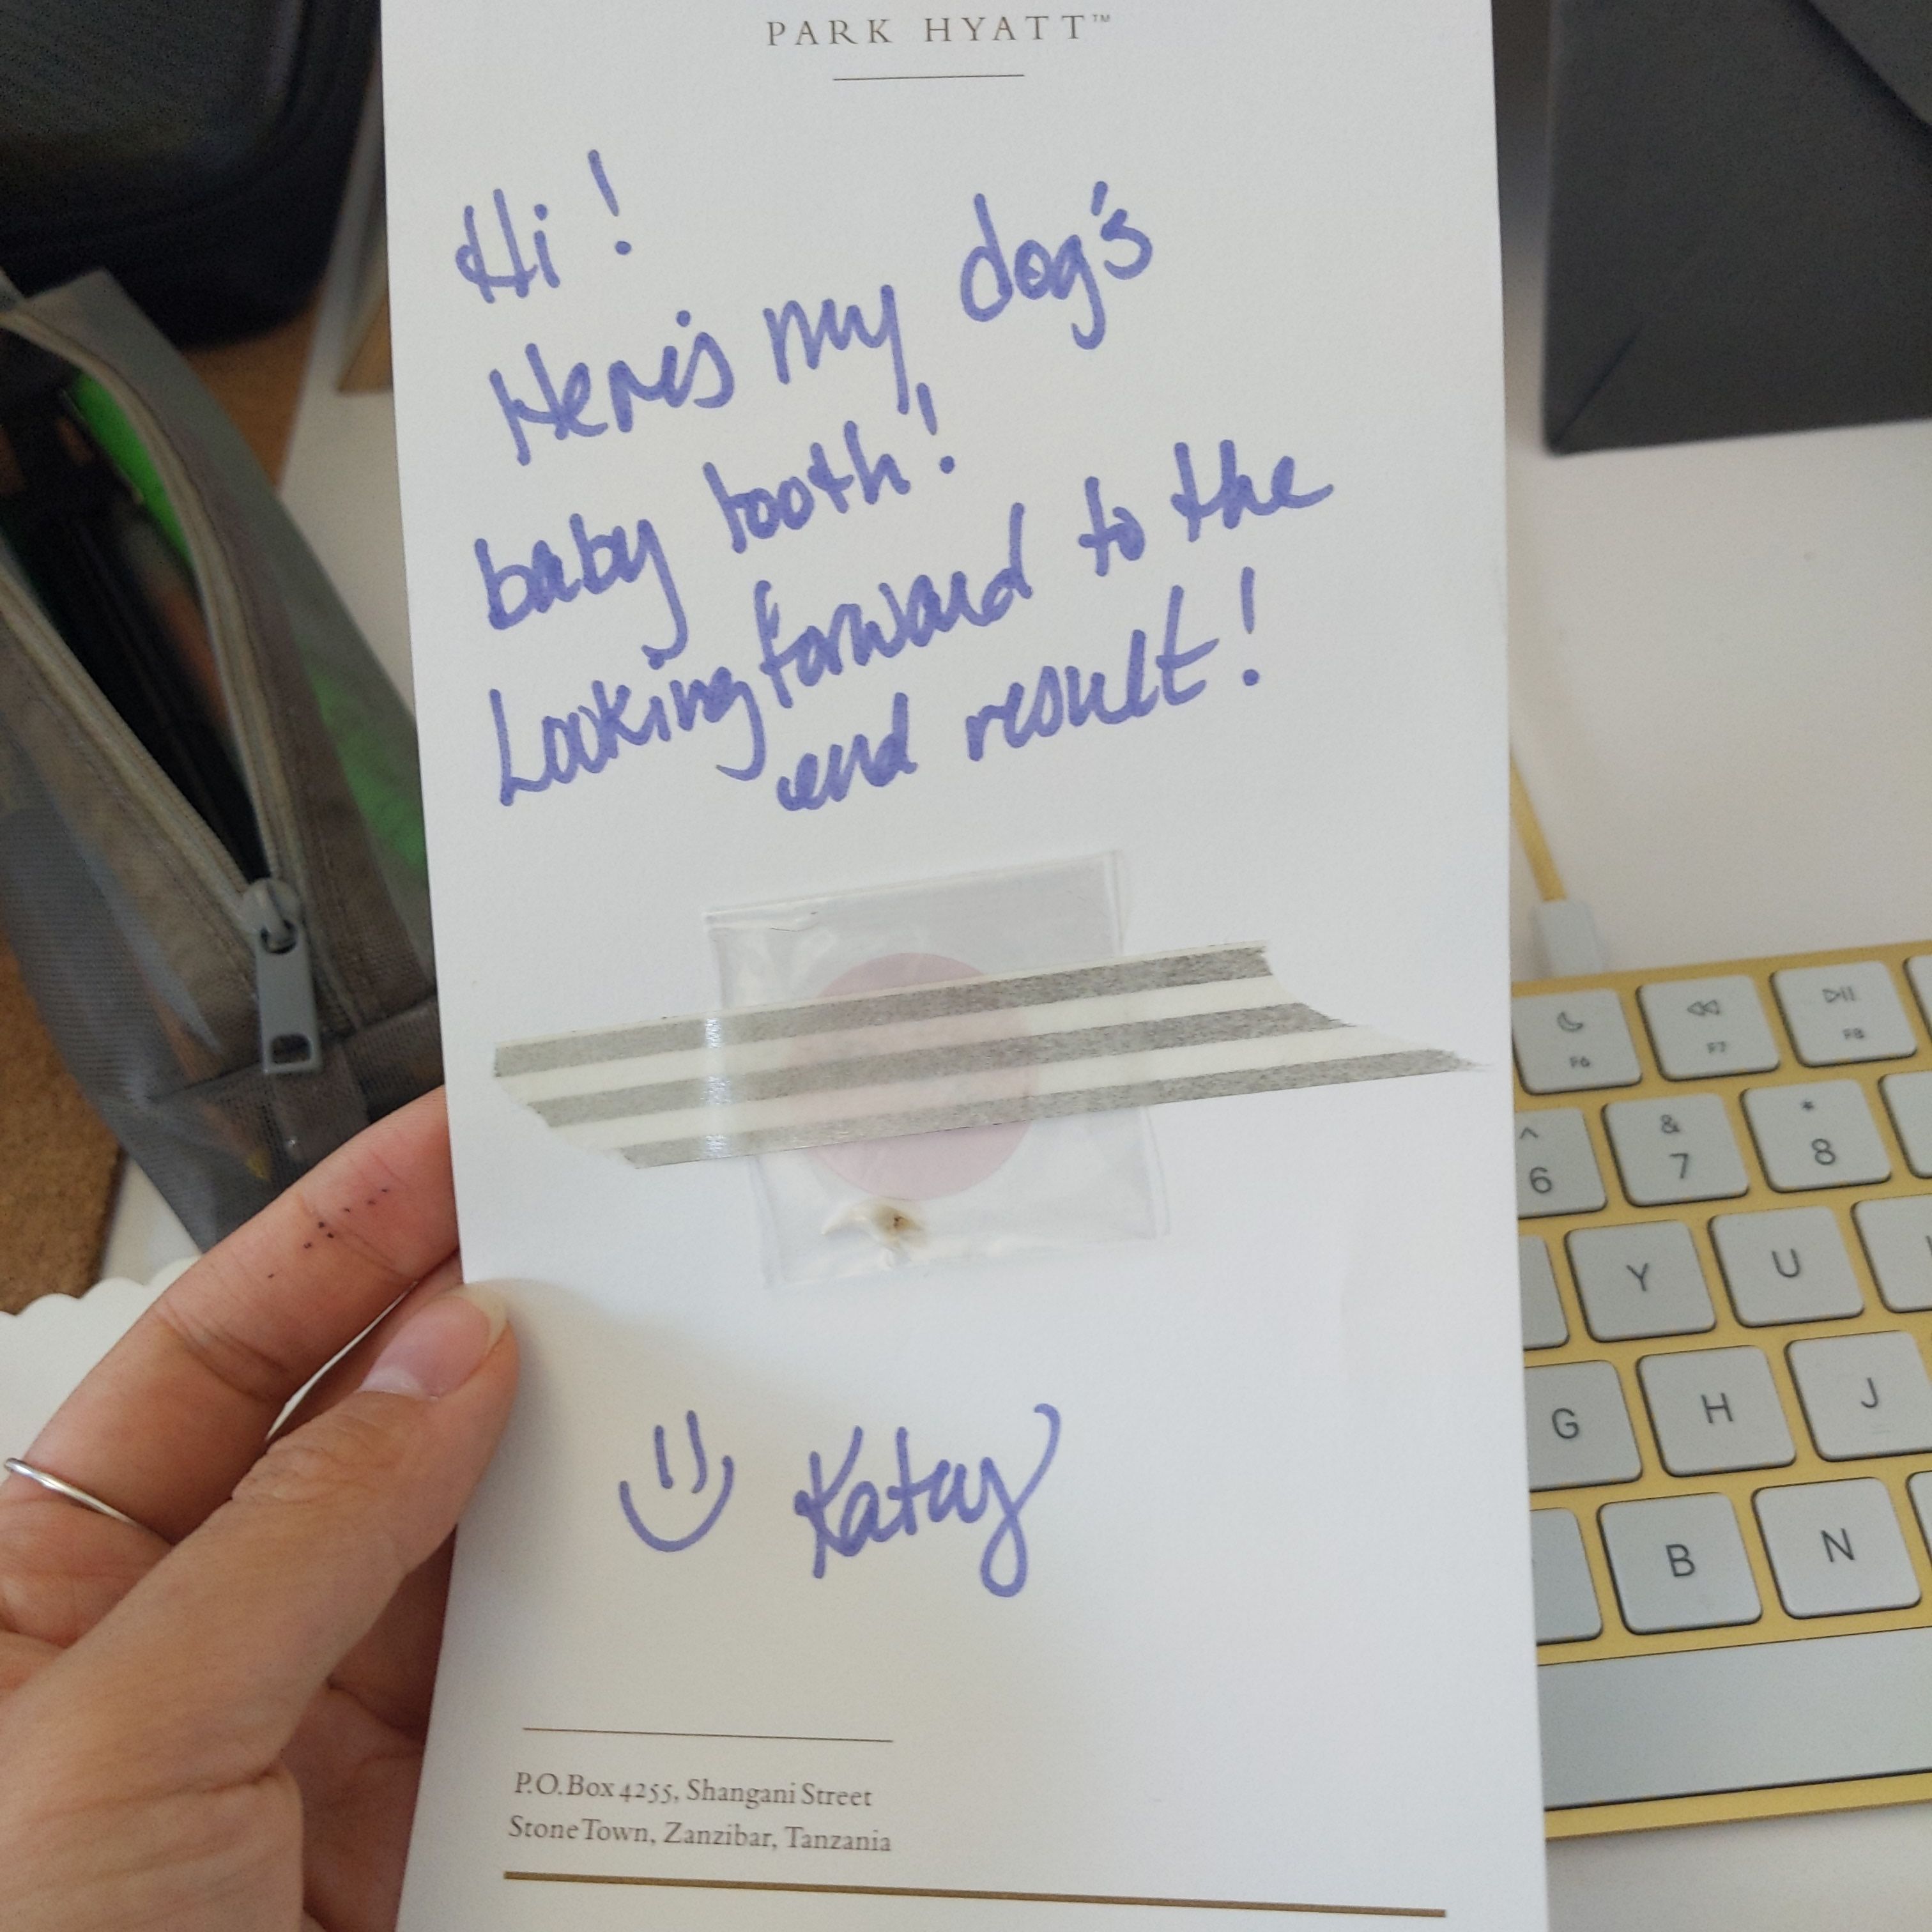 PARK HYATT™
Hi!
Here's my dog's
baby tooth!
Looking forward to the
end result!
Katay
P.O.Box 4255, Shangani Street
Stone Town, Zanzibar, Tanzania
F6 F7 F8
^ 6 & 7 * 8
Y U
G H J
B N